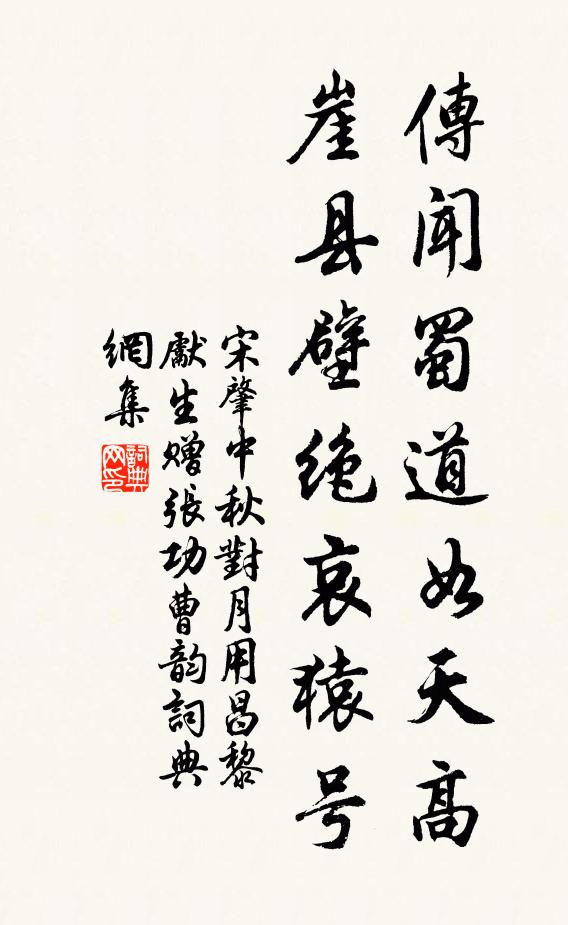 傳聞蜀道如天高
崖县壁绝哀猿号
宋肇中秋對月用昌黎
獻生贈張功曹韵詞典
網集
詞典
网印